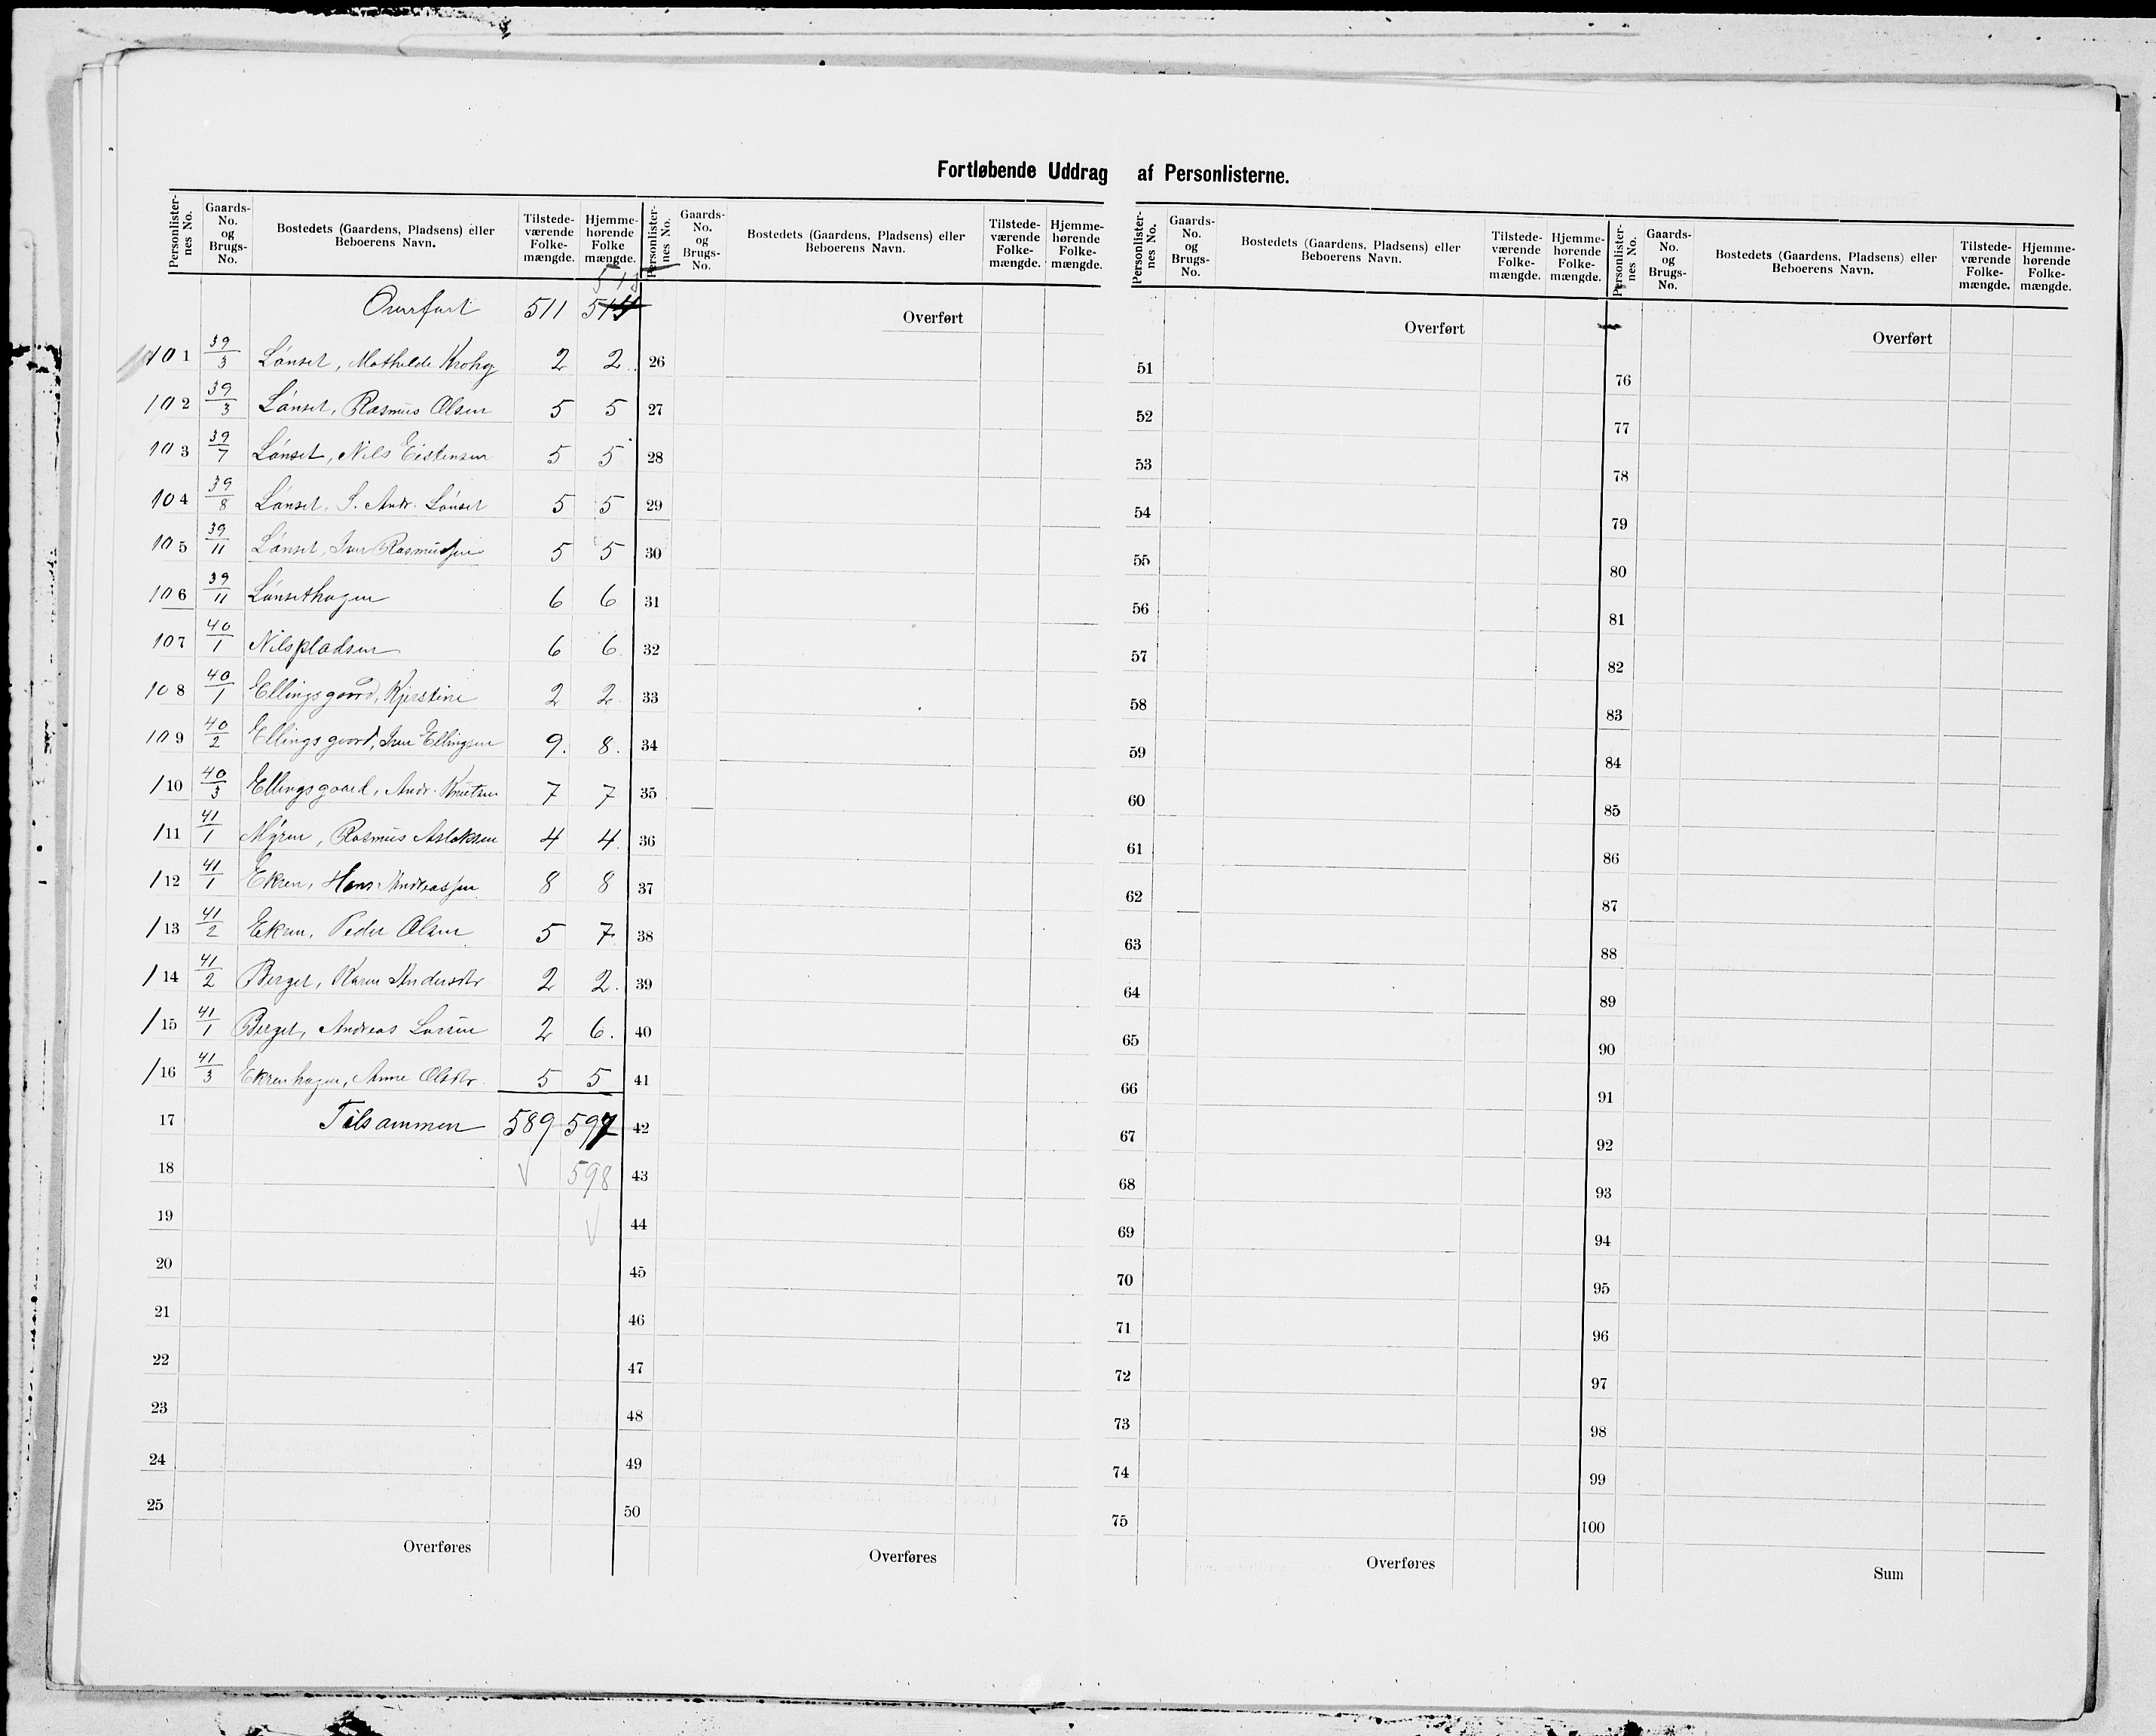 Fortløbende Uddrag af Personlisterne.
Personlisternes No. Gaards-No. og Brugs-No. Bostedets (Gaardens, Pladsens) eller Beboerens Navn. Tilstedeværende Folkemængde. Hjemmehørende Folkemængde.
Personlisternes No. Gaards-No. og Brugs-No. Bostedets (Gaardens, Pladsens) eller Beboerens Navn. Tilstedeværende Folkemængde. Hjemmehørende Folkemængde.
Personlisternes No. Gaards-No. og Brugs-No. Bostedets (Gaardens, Pladsens) eller Beboerens Navn. Tilstedeværende Folkemængde. Hjemmehørende Folkemængde.
Personlisternes No. Gaards-No. og Brugs-No. Bostedets (Gaardens, Pladsens) eller Beboerens Navn. Tilstedeværende Folkemængde. Hjemmehørende Folkemængde.
Overført 511
101 39/3 Lønset, Mathilde Krohg 2 2
102 39/3 Lønset, Rasmus Olsen 5 5
103 39/7 Lønset, Nils Eistensen 5 5
104 39/8 Lønset, S. Andr. Lønset 5 5
105 39/11 Lønset, Iver Rasmussen 5 5
106 39/11 Lønsethagen 6 6
107 40/1 Nilspladsen 6 6
108 40/1 Ellingsgaard, Kjerstine 2 2
109 40/2 Ellingsgaard, Iver Ellingsen 9. 8.
110 40/3 Ellingsgaard, Andr. Knutsen 7 7
111 41/1 Myren, Rasmus Aslaksen 4 4
112 41/1 Ekren, Hans Andreassen 8 8
113 41/2 Ekren, Peder Olsen 5 7
114 41/2 Berget, Karen Andersdtr 2 2.
115 41/1 Berget, Andreas Larsen 2 6.
116 41/3 Ekrenhagen, Anne Olsdtr. 5 5
17 Tilsammen 589 597
18 598
19
20
21
22
23
24
25
Overføres
Overført
26
27
28
29
30
31
32
33
34
35
36
37
38
39
40
41
42
43
44
45
46
47
48
49
50
Overføres
Overført
51
52
53
54
55
56
57
58
59
60
61
62
63
64
65
66
67
68
69
70
71
72
73
74
75
Overføres
Overført
76
77
78
79
80
81
82
83
84
85
86
87
88
89
90
91
92
93
94
95
96
97
98
99
100
Sum